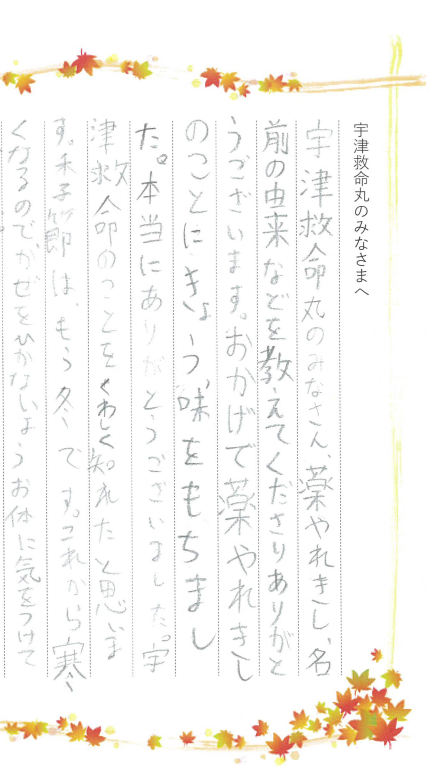 宇津救命丸のみなさまへ
宇津救命丸のみなさん、薬やれきし、名
前の由来などを教えてくださりありがと
うございます。おかげで薬やれきし
のことにきょうう味をもちまし
た。本当にありがとうございました。宇
津救命のことをくわしく知れたと思いま
す。季節は、もう冬です。これから寒
くなるので、かぜをひかないようお体に気をつけて